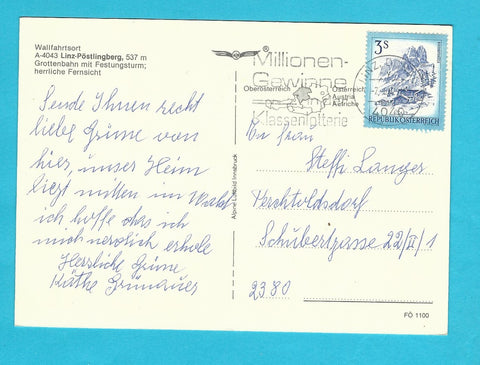 Wallfahrtsort
A-4043 Linz-Pöstlingberg, 537 m
Grottenbahn mit Festungsturm;
herrliche Fernsicht
Sende Ihnen recht
liebe Grüsse von
hier, unser Heim
liegt mitten im Wald
ich hoffe das ich
mich nervlich erhole
Herzliche Grüsse
Käthe Grünauer
Alpine Luftbild Innsbruck
Millionen-
Gewinne
Oberösterreich Österreich
Austria
Autriche
Klassenlotterie
3 S
REPUBLIK ÖSTERREICH
LINZ
4040
An Frau
Steffi Langer
Perchtoldsdorf
Schubertgasse 22/II/1
2380
FÖ 1100